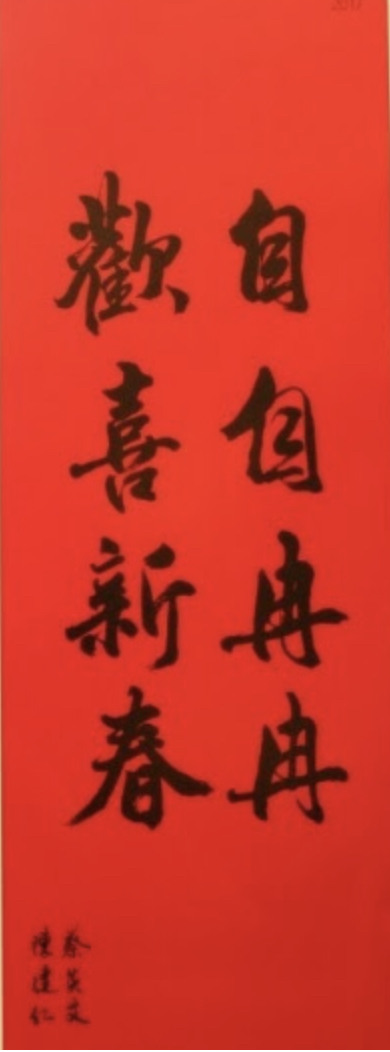 2017
自自冉冉
歡喜新春
蔡英文
陳建仁